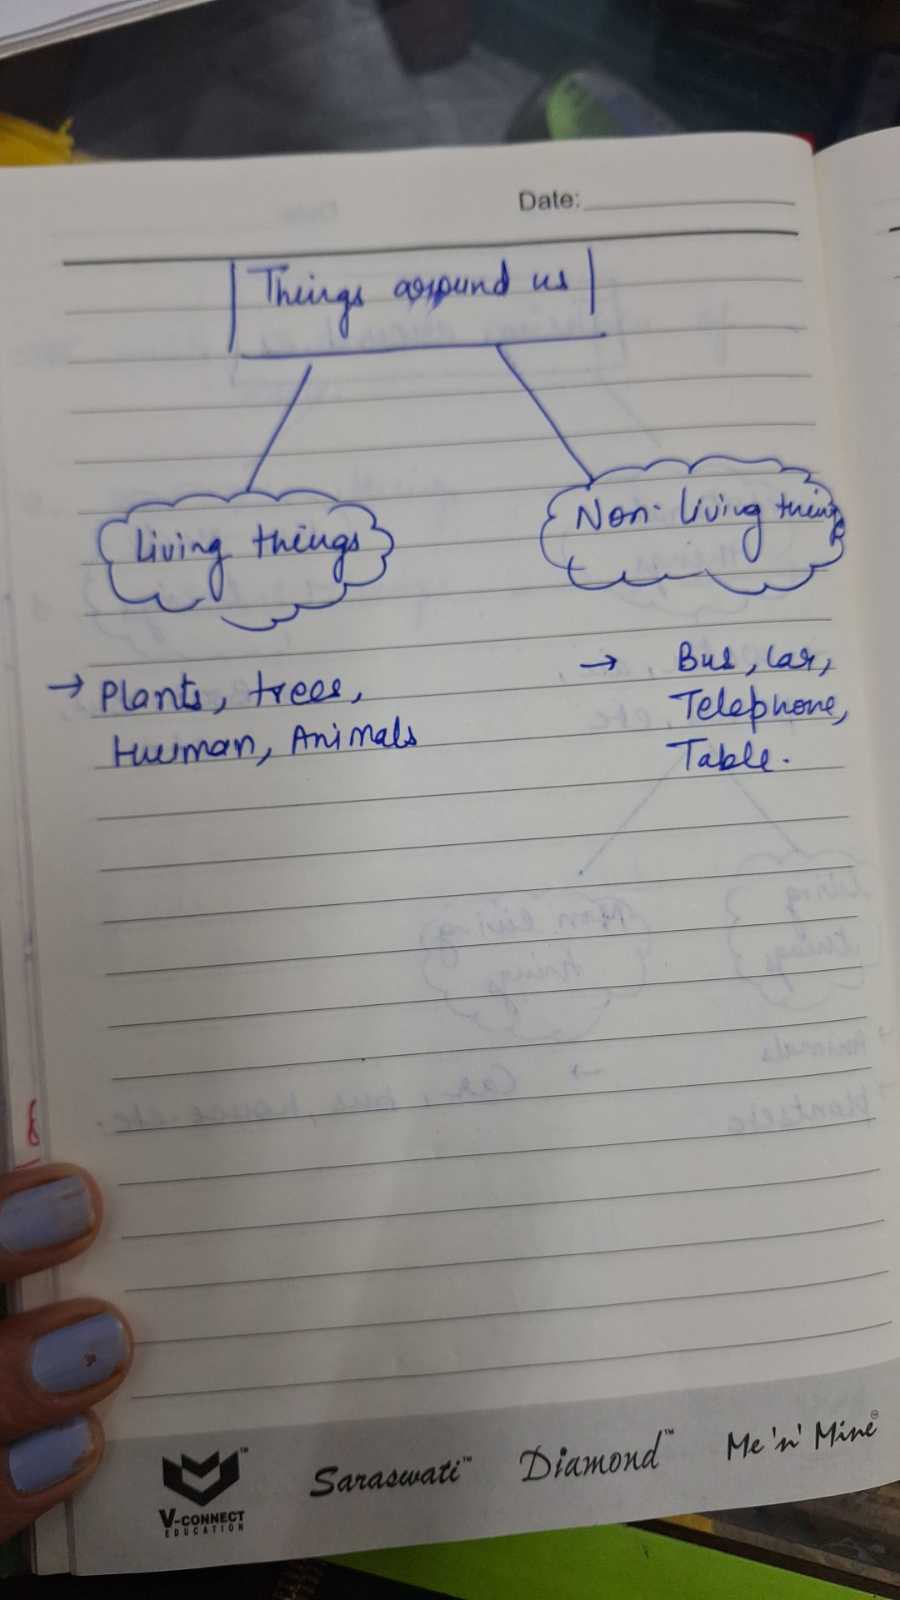 Date:
Things around us
Living things
Non-living things
→ Plants, trees,
Human, Animals
→ Bus, Car,
Telephone,
Table.
V-CONNECT
EDUCATION
Saraswati™
Diamond™
Me 'n' Mine